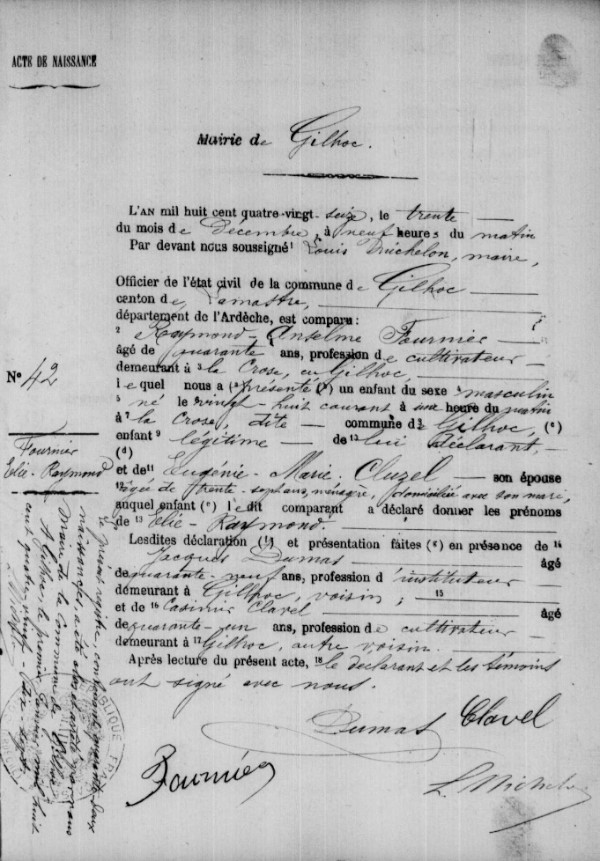 ACTE DE NAISSANCE
Mairie de Gilhoc.
L'AN mil huit cent quatre-vingt-seize, le trente
du mois de décembre, à neuf heures du matin
Par devant nous soussigné ¹ Louis maire,
Officier de l'état civil de la commune de Gilhoc
canton de Lamastre,
département de l'Ardèche, est comparu :
² Raymond-Anselme Fournier
âgé de quarante ans, profession de cultivateur
demeurant à ³ la Crose, en Gilhoc,
lequel nous a (ᵃ) présenté (ᵇ) un enfant du sexe ⁴ masculin
⁵ né le vingt-huit courant à une heure du matin
à ⁷ la Crose, dite commune d⁸ Gilhoc, (ᶜ)
enfant ⁹ légitime de ¹⁰ lui déclarant,
(ᵈ)
et de ¹¹ Eugénie-Marie Cluzel son épouse
¹² âgée de trente-sept ans, ménagère, domiciliée avec son mari,
auquel enfant (ᵉ) ledit comparant a déclaré donner les prénoms
de ¹³ Elie-Raymond.
Lesdites déclaration (ᶠ) et présentation faites (ᵍ) en présence de ¹⁴
Jacques Dumas âgé
de quarante-neuf ans, profession d'instituteur
demeurant à Gilhoc, voisin, ¹⁵
et de ¹⁶ Casimir Clavel âgé
de quarante-un ans, profession de cultivateur
demeurant à ¹⁷ Gilhoc, autre voisin.
Après lecture du présent acte, ¹⁸ le déclarant et les témoins
ont signé avec nous.
Dumas Clavel
Fournier
L. Michel
N° 42
Fournier
Elie-Raymond
le présent registre, contenant quarante-deux
naissances, a été clos et arrêté par nous
Maire de la commune de Gilhoc
A Gilhoc le premier Janvier mil huit
cent quatre-vingt-dix-sept.